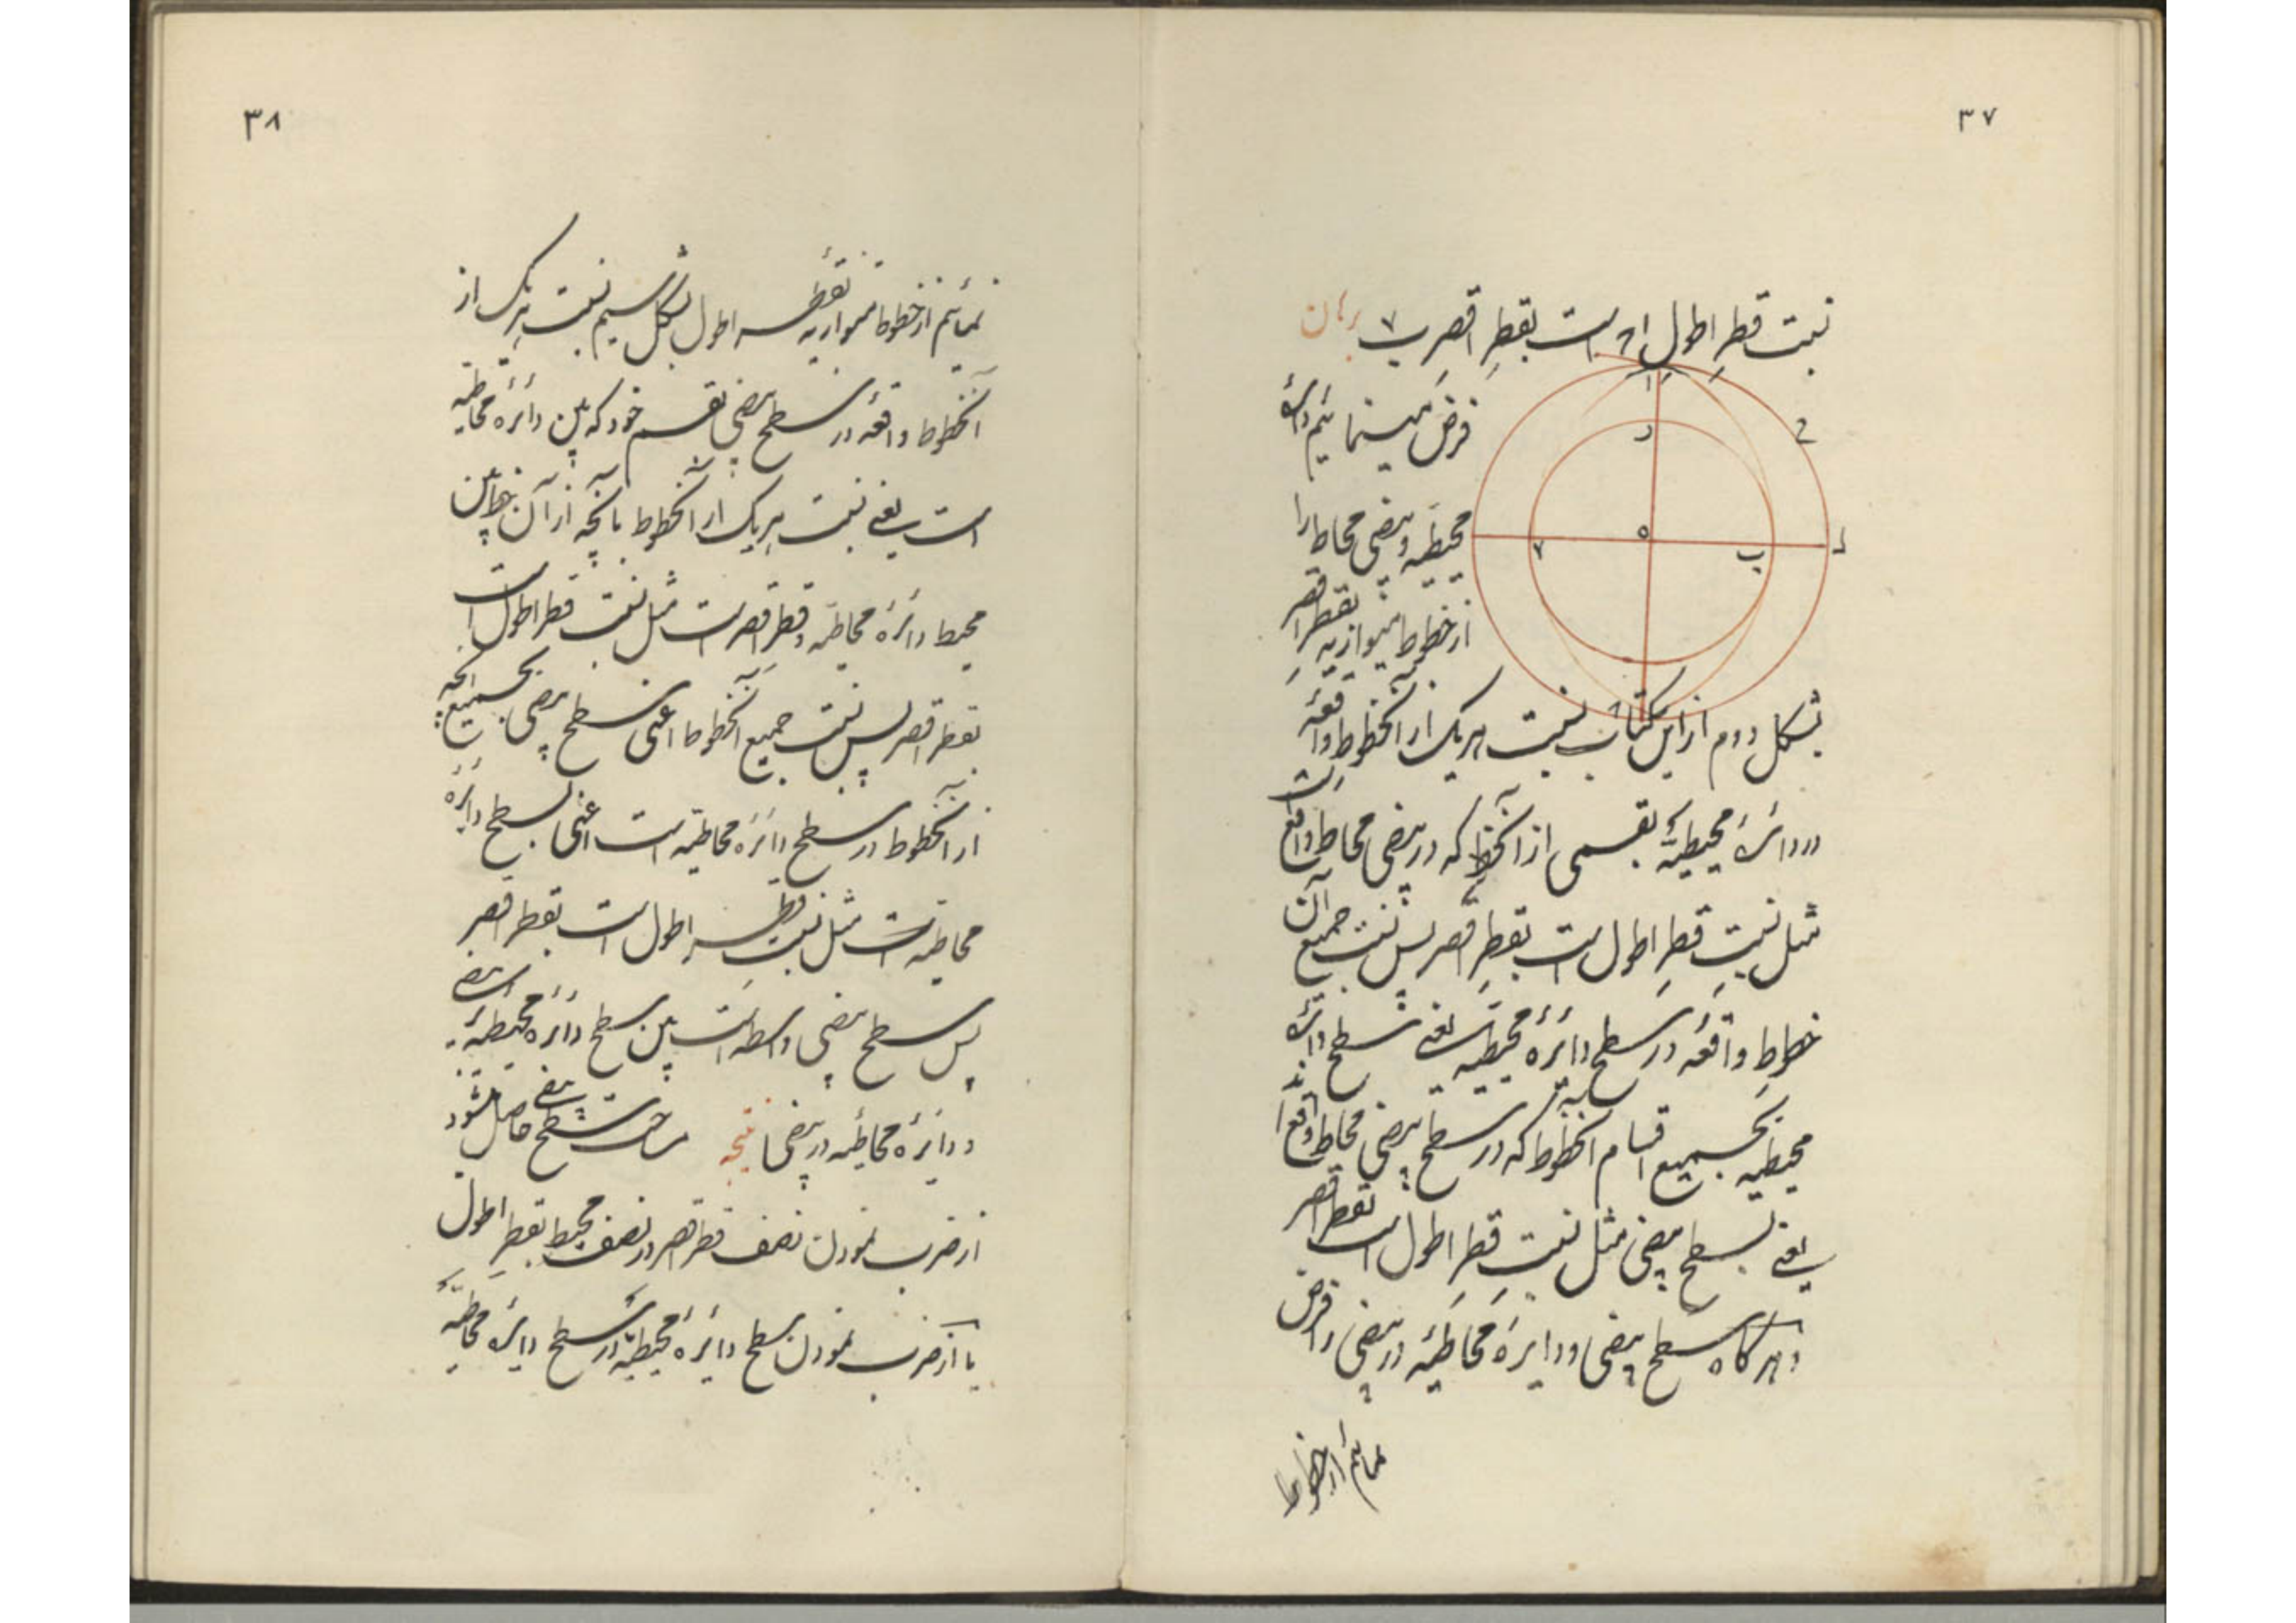 ۳۷
نسبت قطرِ اطولِ ا ح است بقطرِ اقصرِ ب ۷ برهان
فرض مینمائیم دائرهٔ
محیطیه و بیضی محاط را
از خطوط متوازیه بقطر اقصر
بشکل دوم از این کتاب نسبت هر یک از آنخطوط واقعه
در دائرهٔ محیطیه بقسمی از آنخط که در بیضی محاط واقع است
مثل نسبتِ قطرِ اطول است بقطرِ اقصر پس نسبت جمیع آن
خطوطِ واقعه در سطح دائرهٔ محیطیه یعنی سطح دائرهٔ
محیطیه بجمیع اقسام آنخطوط که در سطح بیضی محاط واقع اند
یعنی بسطح بیضی مثل نسبتِ قطرِ اطول است بقطر اقصر
و هرگاه سطح بیضی و دایرهٔ محاطیه در بیضی را فرض
نمائیم از خطوط
ا
ر
ح
ه
ب
۷
د
۳۸
نمائیم از خطوط متوازیه بقطر اطول بشکل سیم نسبت هر یک از
آنخطوط واقعه در سطح بیضی بقسم خود که بین دائرهٔ محاطیه
است یعنی نسبت هر یک از آنخطوط بآنچه از آن خط بین
محیط دائرهٔ محاطیه و قطر اقصر است مثل نسبت قطر اطول است
بقطر اقصر پس نسبت جمیع آنخطوط اعنی سطح بیضی بجمیع آنچه
از آنخطوط در سطح دائرهٔ محاطیه است اعنی بسطح دائرهٔ
محاطیه است مثل نسبت قطر اطول است بقطر اقصر
پس سطح بیضی واسطه است بین سطح دائرهٔ محیطیه بر بیضی
و دایرهٔ محاطیه در بیضی نتیجه مساحت سطح بیضی حاصل میشود
از ضرب نمودن نصف قطر اقصر در نصف محیط بقطر اطول
یا از ضرب نمودن سطح دائرهٔ محیطیه در سطح دایرهٔ محاطیه